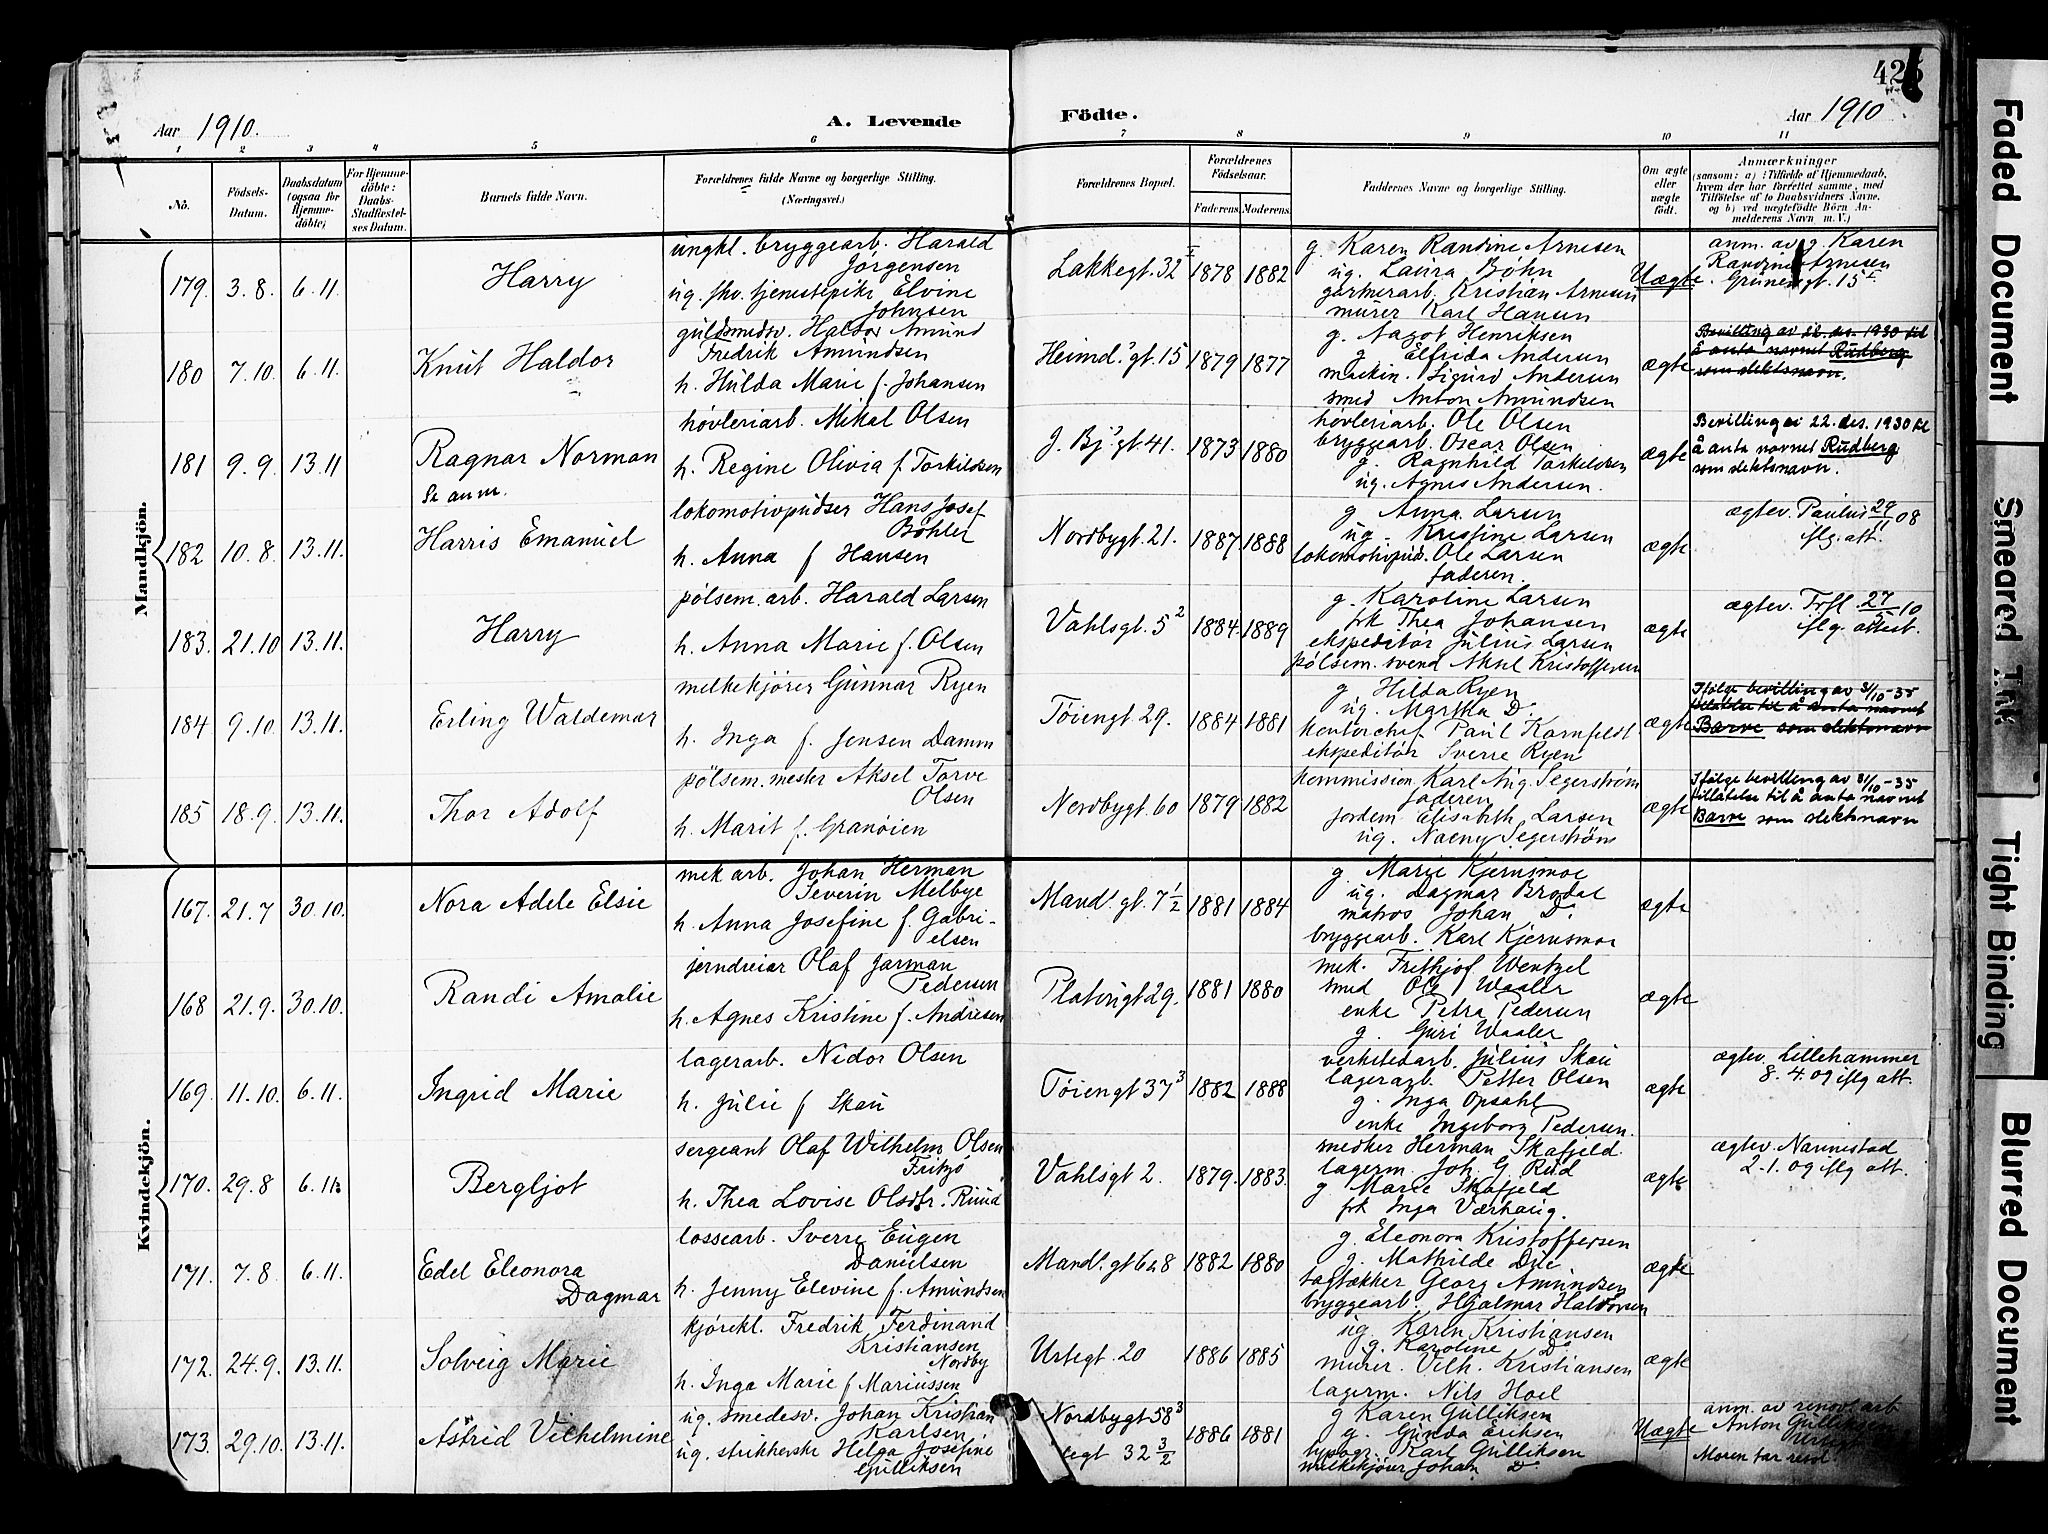 425
Aar 1910.
A. Levende
Fødte.
Aar 1910
1 2 3 4 5 6 7 8 9 10 11
No.
Fødsels-
Datum.
Daabsdatum
(ogsaa for
Hjemme-
døbte)
For Hjemme-
døbte:
Daabs-
Stadfæstel-
ses Datum.
Barnets fulde Navn.
Forældrenes fulde Navne og borgerlige Stilling.
(Næringsvei.)
Forældrenes Bopæl.
Forældrenes
Fødselsaar.
Faderens. Moderens.
Faddernes Navne og borgerlige Stilling.
Om ægte
eller
uægte
født.
Anmærkninger
(saasom: a) i Tilfælde af Hjemmedaab,
hvem der har forrettet samme, med
Tilføielse af to Daabsvidners Navne,
og b) ved uægtefødte Børn An-
melderens Navn m. V.)
Mandkjøn.
179. 3.8. 6.11.
Harry
ungkl. bryggearb. Harald
Jørgensen
ug. fhv. tjenestepike Elvine
Johnsen
Lakkegt. 32 I
1878 1882
g. Karen Randine Arnesen
ug. Laura Bøhn
gartnerarb. Kristian Arnesen
murer Karl Hansen
Uægte
anm. av g. Karen
Randine Arnesen
Grünersgt. 15
180 7.10. 6.11.
Knut Haldor
guldsmedsv. Haldor Amund
Fredrik Amundsen
h. Hulda Marie f. Johansen
Heimd.s gt. 15
1879 1877
g. Aagot Henriksen
g. Elfrida Andersen
maskin. Sigurd Andersen
smed Anton Amundsen
ægte
Bevilling av 22. des. 1930 til
å anta navnet Rudberg
som slektsnavn.
181 9.9. 13.11
Ragnar Norman
Se anm.
høvleriarb. Mikal Olsen
h. Regine Olivia f. Torkildsen
J. Bj.s gt. 41.
1873 1880
høvleriarb. Ole Olsen
bryggearb. Oscar Olsen
g. Ragnhild Torkildsen
ug. Agnes Andersen.
ægte
Bevilling av 22. des. 1930 til
å anta navnet Rudberg
som slektsnavn.
182 10.8. 13.11.
Harris Emanuel
lokomotivpudser Hans Josef
Bøhler
h. Anna f Hansen
Nordbygt. 21.
1887 1888
g Anna Larsen
ug. Kristine Larsen
lokomotivpud. Ole Larsen
faderen.
ægte
ægtev. Paulus 29/11 08
iflg. att.
183. 21.10 13.11.
Harry
pølsem. arb. Harald Larsen
h. Anna Marie f. Olsen
Vahlsgt. 5 2
1884 1889
g. Karoline Larsen
frk Thea Johansen
ekspeditør Julius Larsen
pølsem. svend Aksel Kristoffersen
ægte
ægtev. Trfl. 27/10
iflg. attest.
184 9.10. 13.11.
Erling Waldemar
melkekjører Gunnar Ryen
h. Inga f. Jensen Damm
Tøiengt. 29.
1884 1881
g. Hilda Ryen
ug. Martha Do.
kontorchef Paul Kornfeldt
ekspeditør Sverre Ryen
ægte
Ifølge bevilling av 31/10-35
tillatelse til å anta navnet
Barve som slektsnavn
185 18.9. 13.11.
Thor Adolf
pølsem. mester Aksel Torve
Olsen
h. Marit f. Granøien
Nordbygt. 60
1879 1882
kommission. Karl Aug. Segerstrøm
faderen
jordem. Elisabeth Larsen
ug. Naemy Segerstrøm
ægte
Ifølge bevilling av 31/10-35
tillatelse til å anta navnet
Barve som slektsnavn
Kvindekjøn.
167. 21.7 30.10.
Nora Adele Elsie
mek arb. Johan Herman
Severin Melbye
h. Anna Josefine f. Gabri-
elsen
Mand.s gt. 7 1/2
1881 1884
g. Marie Kjernsmoe
ug. Dagmar Brodal
matros Johan Do.
bryggearb. Karl Kjernsmoe
ægte
168 21.9. 30.10.
Randi Amalie
jerndreier Olaf Jarman
Pedersen
h. Agnes Kristine f. Andresen
Platousgt 29.
1881 1880
mek. Frithjof Wentzel
smed Ole Waaler
enke Petra Pedersen
g. Guri Waaler
ægte
169. 11.10. 6.11.
Ingrid Marie
lagerarb. Nidor Olsen
h. Julie f Skau
Tøiengt 37 3
1882 1888
verkstedarb. Julius Skau
lagerarb. Petter Olsen
g. Inga Opsahl
enke Ingeborg Pedersen.
ægte
ægtev. Lillehammer
8. 4. 09 iflg att.
170. 29.8 6.11.
Bergljot
sergeant Olaf Wilhelm Olsen
h. Thea Lovise Olsdtr. Ruud
Vahlsgt 2.
1879. 1883.
snedker Herman Skafjeld.
lagerm. Joh. G. Rud
g Marie Skafjeld
frk Inga Værhaug.
ægte
ægtev. Nannestad
2.1.09 iflg att.
171. 7.8 6.11.
Edel Eleonora
Dagmar
lossearb. Sverre Eugen
Danielsen
h. Jenny Elevine f. Amundsen
Mand.s gt 6 a 8
1882 1880
g. Eleonora Kristoffersen
g. Mathilde Due
tagtækker Georg Amundsen
bryggearb. Hjalmar Haldorsen
ægte
172. 24.9. 13.11.
Solveig Marie
kjørekl. Fredrik Ferdinand
Kristiansen
Nordby
h. Inga Marie f Mariussen
Urtegt. 20
1886 1885
ug. Karen Kristiansen
g. Karoline Do
murer. Vilh. Kristiansen
lagerm. Nils Hoel
ægte
173. 29.10. 13.11.
Astrid Vilhelmine
ug. smedesv. Johan Kristian
Karlsen
ug. strikkerske Helga Josefine
Gulliksen
Nordbygt 58 3
tegt 32 3/2
1886 1881
g Karen Gulliksen
g. Gunda Eriksen
typogr. Karl Gulliksen
melkekjører Johan Do
Uægte
anm. av renov. arb
Anton Gulliksen
Moren har resid.
Faded Document
Smeared Ink
Tight Binding
Blurred Document